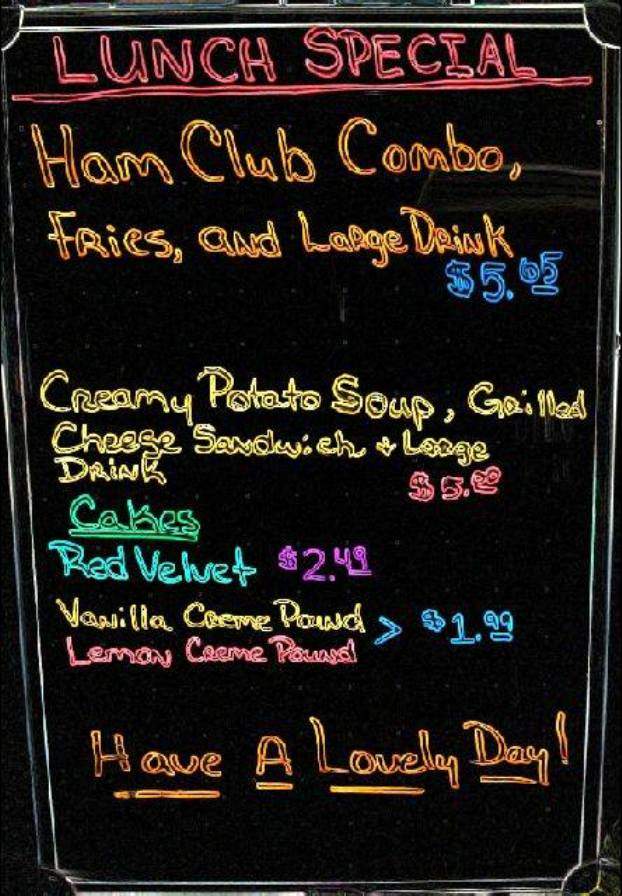 LUNCH SPECIAL
Ham Club Combo,
Fries, and Large Drink
$5.65
Creamy Potato Soup, Grilled
Cheese Sandwich + Large
Drink
$5.20
Cakes
Red Velvet $2.49
Vanilla Creme Pound > $1.99
Lemon Creme Pound
Have A Lovely Day!